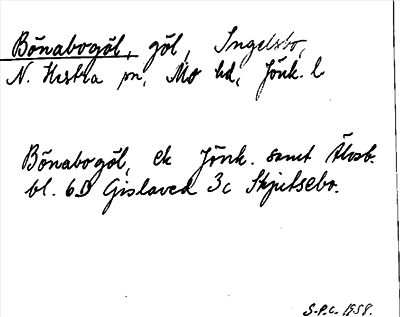 Bönabogöl, göl, Ingelsbo,
N. Hestra sn, Mo hd, Jönk. l
Bönabogöl, ek Jönk. samt Älvsb.
bl. 6D Gislaved 3c Skjutsebo.
S.P.C. 1958.